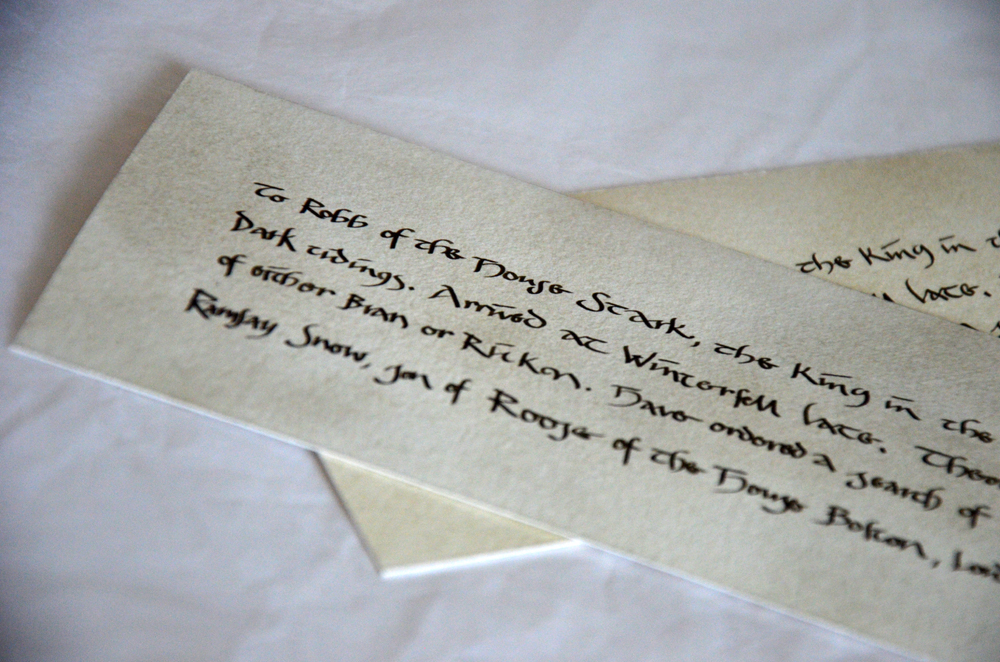 To Robb of the House Stark, the King in the
Dark tidings. Arrived at Winterfell late.
of either Bran or Rickon. Have ordered a search of
Ramsay Snow, son of Roose of the House Bolton,
the King in
late.